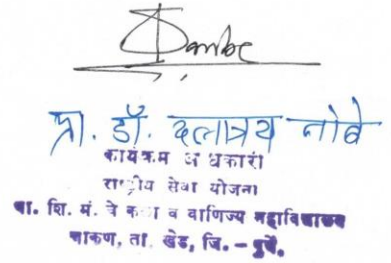 प्रा. डॉ. दत्तात्रय
कार्यक्रम अधिकारी
राष्ट्रीय सेवा योजना
शि. मं. चे कला व वाणिज्य महाविद्यालय
चाकण, ता. खेड, जि. - पुणे.